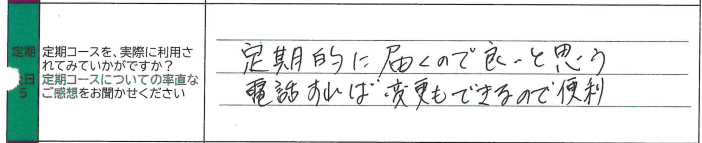 定期
5
定期コースを、実際に利用さ
れてみていかがですか？
定期コースについての率直な
ご感想をお聞かせください
定期的に届くので良いと思う
電話すれば変更もできるので便利